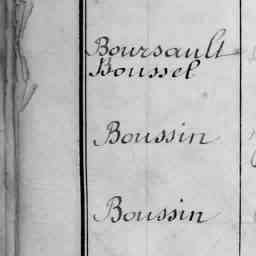 Boursault
Boussel
Boussin
Boussin